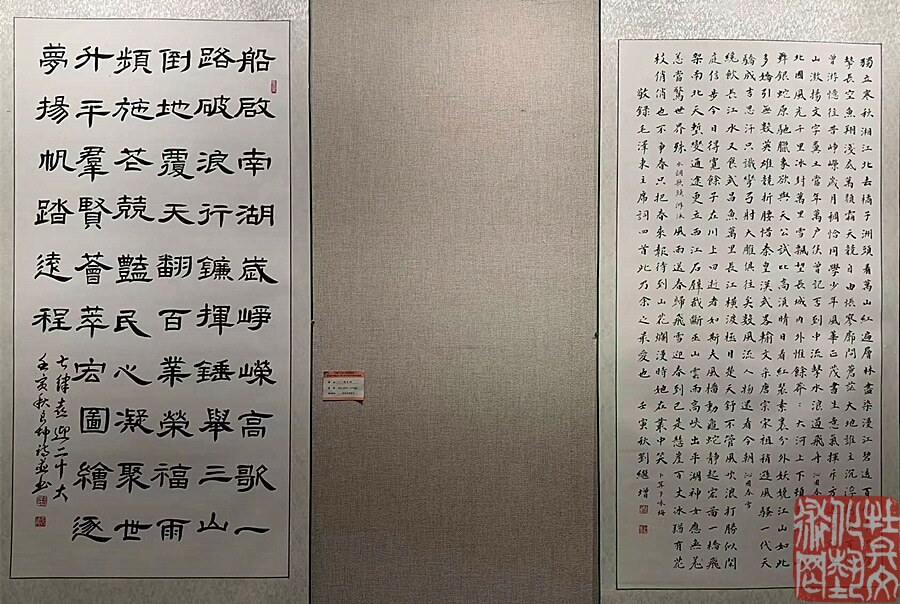 船啟南湖歲崢嶸高歌一
路破浪行鐮揮錘舉三山
倒地覆天翻百業榮福雨
頻施花競豔民心凝聚世
升平羣賢薈萃宏圖繪逐
夢揚帆踏遠程
七律喜迎二十大
獨立寒秋湘江北去橘子洲頭看萬山紅遍層林盡染漫江碧透百
擊長空魚翔淺底萬類霜天競自由悵寥廓問蒼茫大地誰主沉浮
曾游憶往昔崢嶸歲月稠恰同學少年風華正茂書生意氣揮斥方
山激揚文字糞土當年萬戶侯曾記否到中流擊水浪遏飛舟 沁園春
北國風光千里冰封萬里雪飄望長城內外惟餘莽〻大河上下頓
舞銀蛇原馳臘象欲與天公試比高須晴日看紅裝素裹分外妖嬈江山如此
多嬌引無數英雄競折腰惜秦皇漢武略輸文采唐宗宋祖稍遜風騷一代天
驕成吉思汗只識彎弓射大雕俱往矣數風流人物還看今朝 沁園春雪
繞飲長江水又食武昌魚萬里長江橫渡極目楚天舒不管風吹浪打勝似閑
庭信步今日得寬餘子在川上曰逝者如斯夫風檣動龜蛇靜起宏圖一橋飛
架南北天塹變通途更立西江石壁截斷巫山雲雨高峽出平湖神女應無恙
當驚世界殊 水調歌頭游泳 風雨送春歸飛雪迎春到已是懸崖百丈冰猶有花
枝俏俏也不爭春只把春來報待到山花爛漫時她在叢中笑 卜算子咏梅
敬錄毛澤東主席詞四首此乃余之最愛也 壬寅秋劉繼增